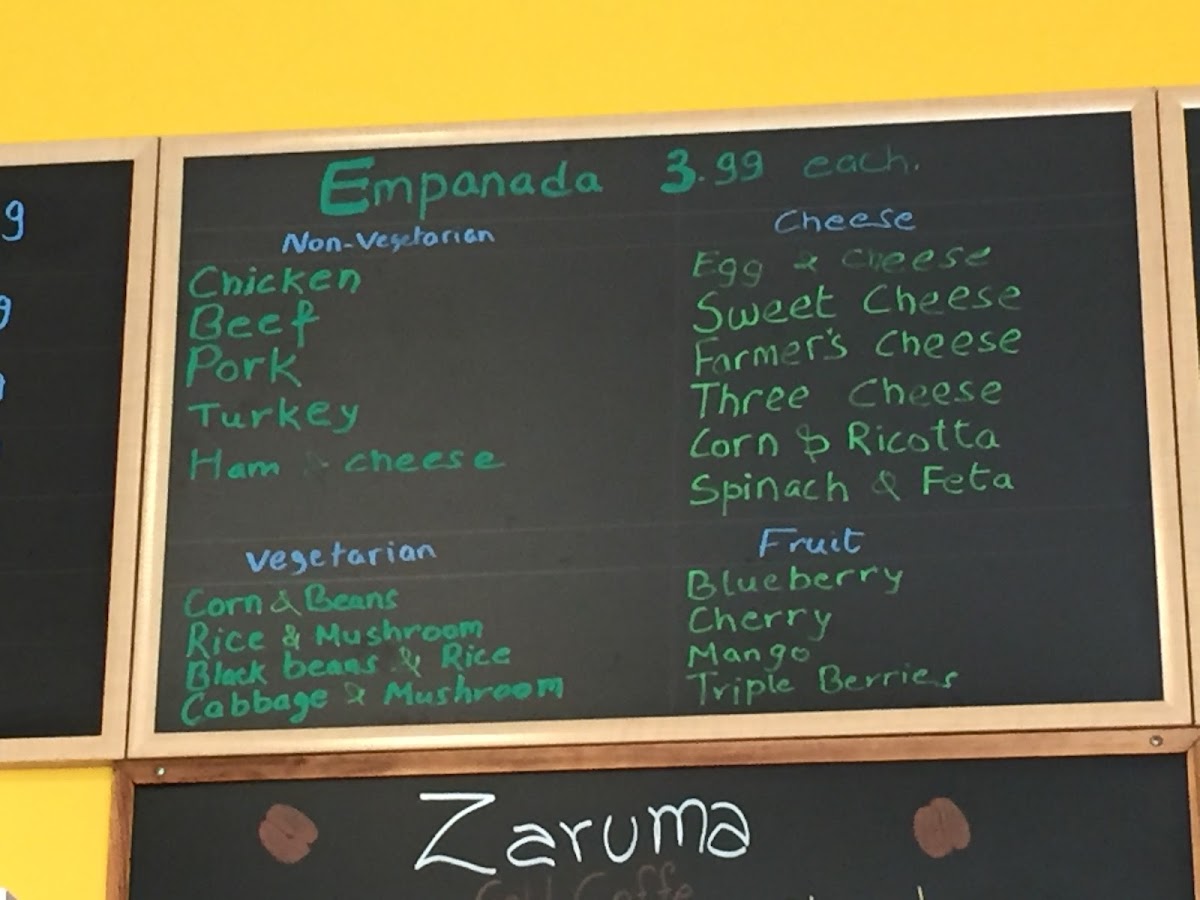 Empanada 3.99 each.
Non-Vegetarian
Chicken
Beef
Pork
Turkey
Ham & cheese
Cheese
Egg & cheese
Sweet Cheese
Farmer's Cheese
Three Cheese
Corn & Ricotta
Spinach & Feta
Vegetarian
Corn & Beans
Rice & Mushroom
Black beans & Rice
Cabbage & Mushroom
Fruit
Blueberry
Cherry
Mango
Triple Berries
Zaruma